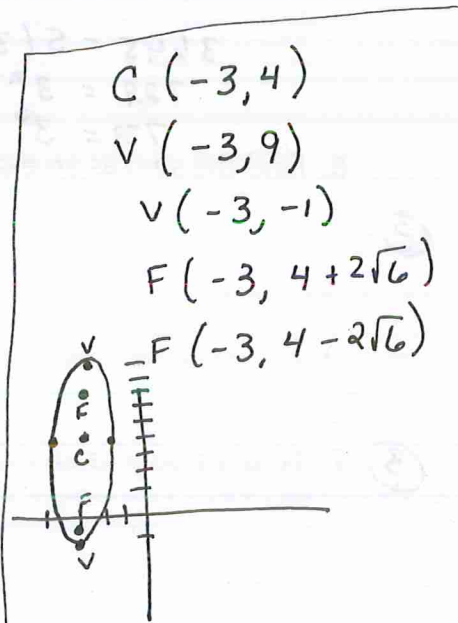 C (-3, 4)
V (-3, 9)
V (-3, -1)
F (-3, 4 + 2√6)
F (-3, 4 - 2√6)
V
F
C
F
V